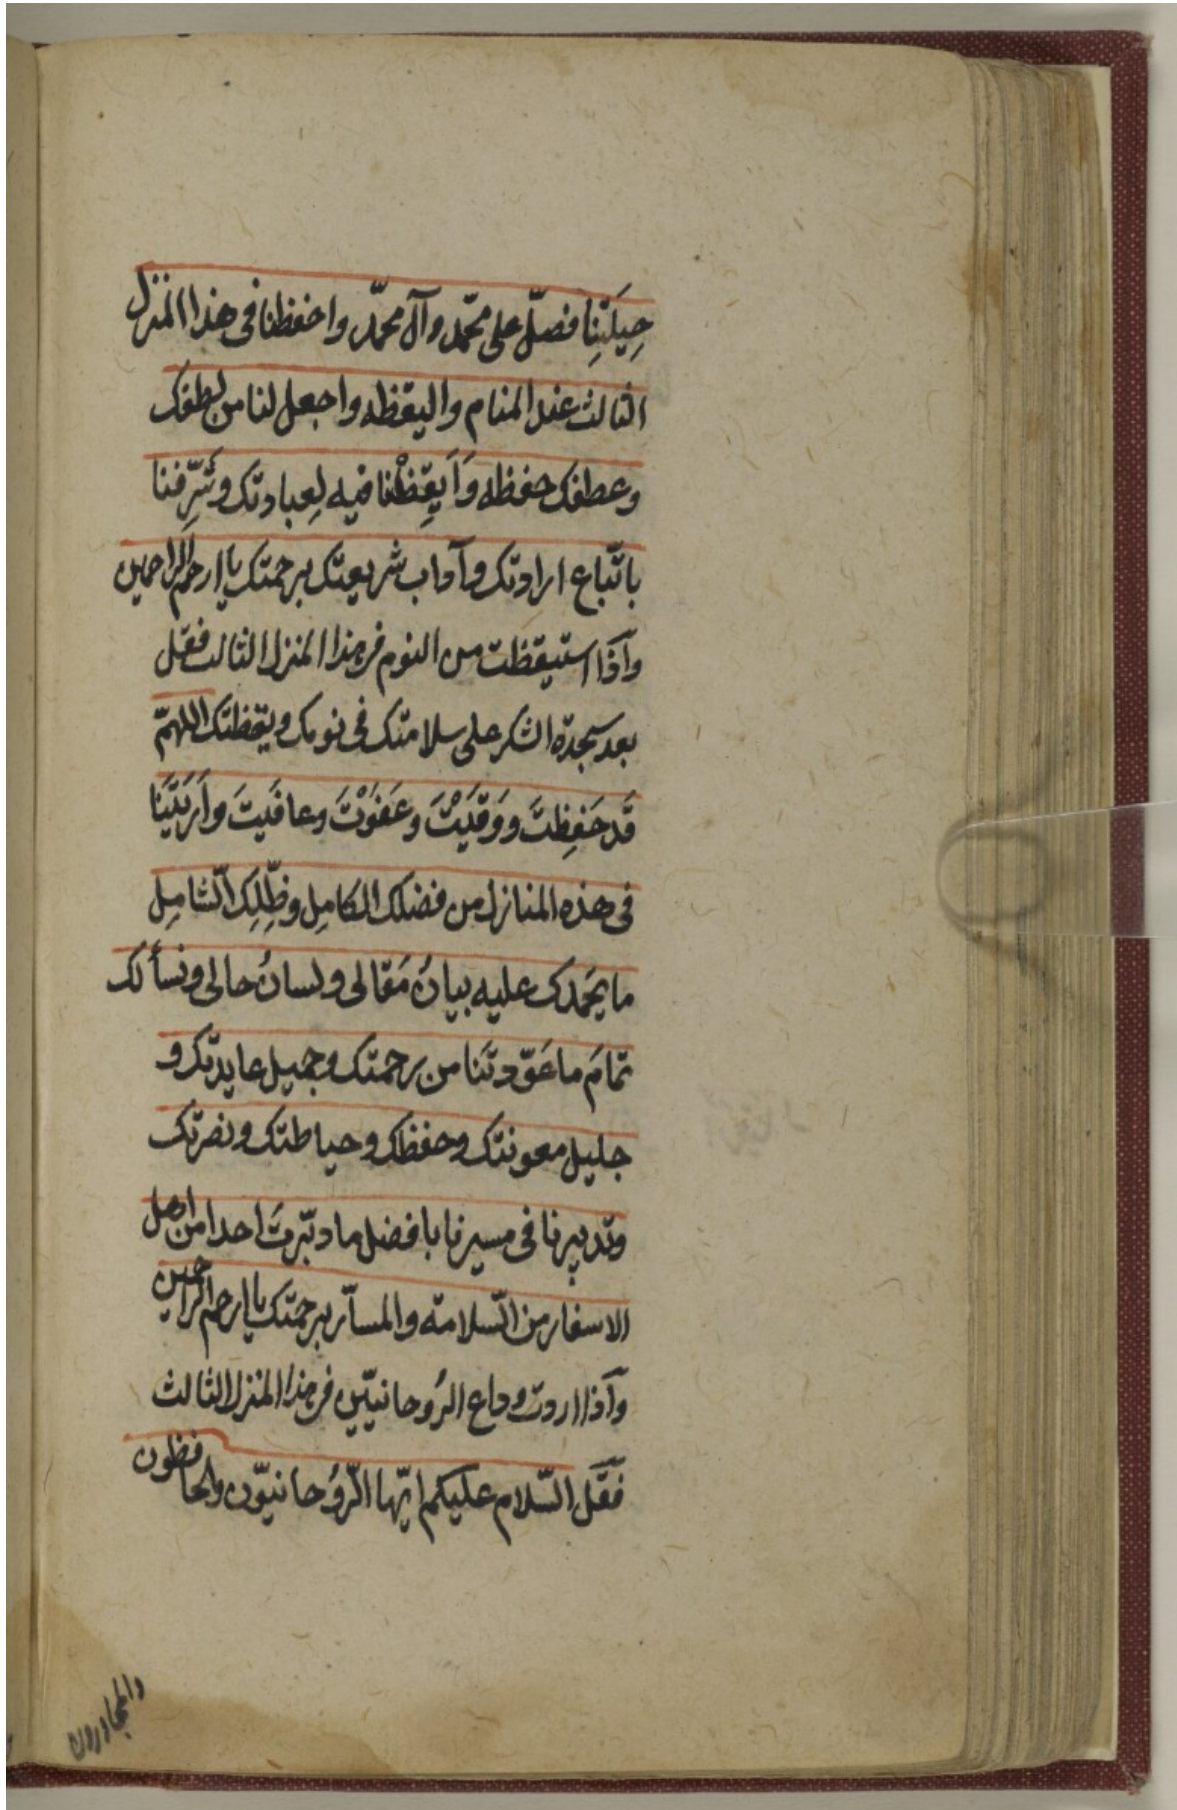 حِيلَتِنا فصلّ على محمّد وآل محمّد واحفظنا فى هذا المنزل
الثالث عند المنام واليقظه واجعل لنا من لطفك
وعطفك حفظه وَاَيقِظْنا فيه لِعبادتك وشَرِّفنا
باتّباع ارادتك وآداب شريعتك برحمتك يا ارحم الراحمين
وآذا استيقظت من النوم فى هذا المنزل الثالث فقل
بعد سجدة الشكر على سلامتك فى نومك ويقظتك اللهمّ
قَد حَفِظتَ ووَقَيْتَ وعَفَوْتَ وعافَيتَ واَرَيتَنا
فى هذه المنازل من فضلك الكامِل وظِلِّك الشّامِل
ما يَحمَدك عليه بيانُ مَقالى ولسانُ حالى ونسألك
تمامَ ما عَوّدتَنا من رحمتك وجميل عايدتك و
جليل معونتك وحفظك وحياطتك ونصرتك
وتدبيرنا فى مسيرنا بافضل ما دبّرتَ احدا من اهل
الاسفار من السّلامة والمسآر برحمتك يا ارحم الراحمين
وآذا اردت وداع الرُوحانيّين فى هذا المنزل الثالث
فَقَل السّلام عليكم ايّها الرّوُحانيّون والحافظون
والمجاورون